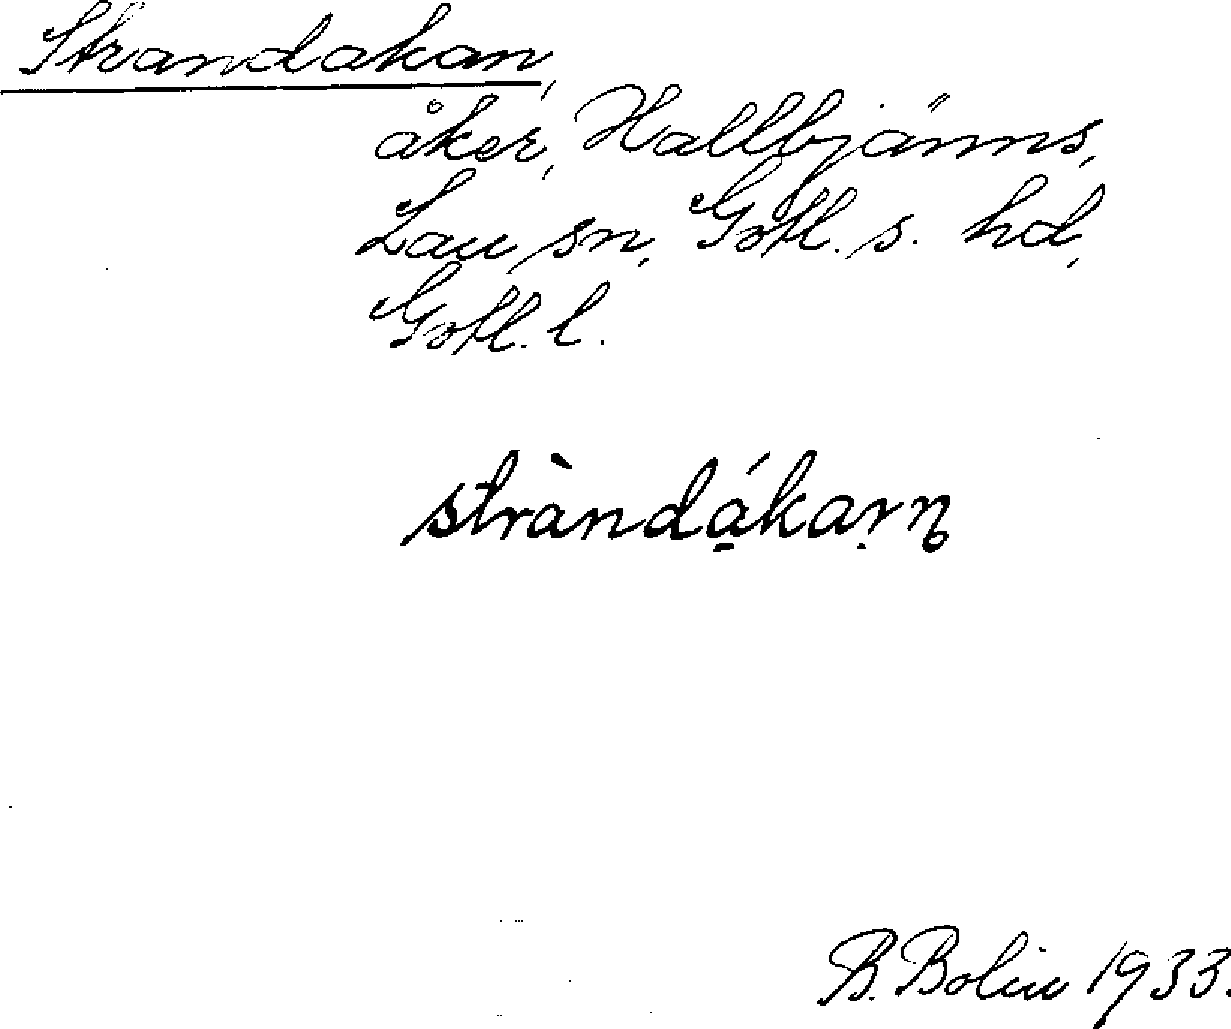 Strandakan,
åker, Hallbjänns,
Lau sn, Gotl. s. hd,
Gotl. l.
stràndá̱kaṛŋ
B. Bolin 1933.